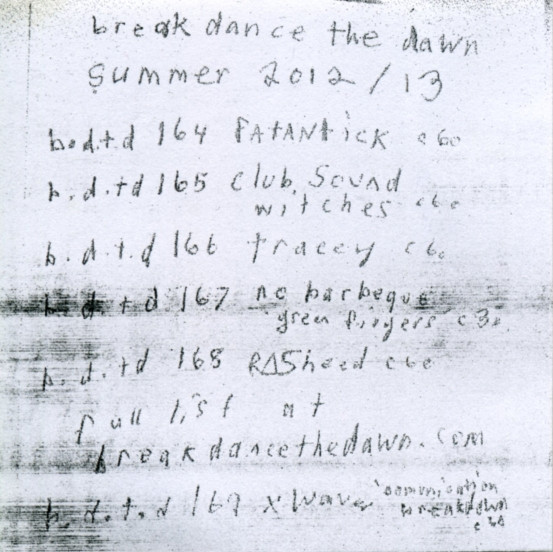 break dance the dawn
summer 2012/13
b.d.t.d 164 FATANTICK c60
b.d.td 165 club. Sound
witches c60
b.d.t.d 166 tracey c60
b.d.td 167 no barbeque
'green fingers' c30
b.d.td 168 RΔSheed c60
full list at
breakdancethedawn.com
b.d.t.d 169 x wave 'comunication
breakdown